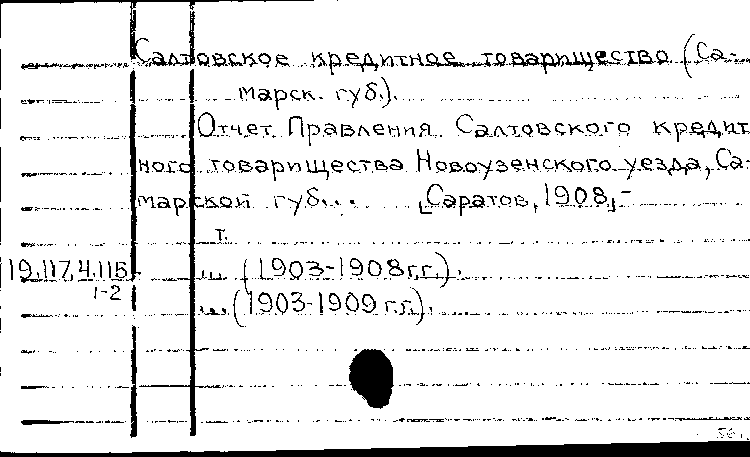 Салтовское кредитное товарищество (Са-
марск. губ.).
Отчет Правления Салтовского кредит
ного товарищества Новоузенского уезда, Са-
марской губ... [Саратов, 1908,-
т.
19.117.4.115 ... (1903-1908 г.г.).
1-2
... (1903-1909 г.г.).